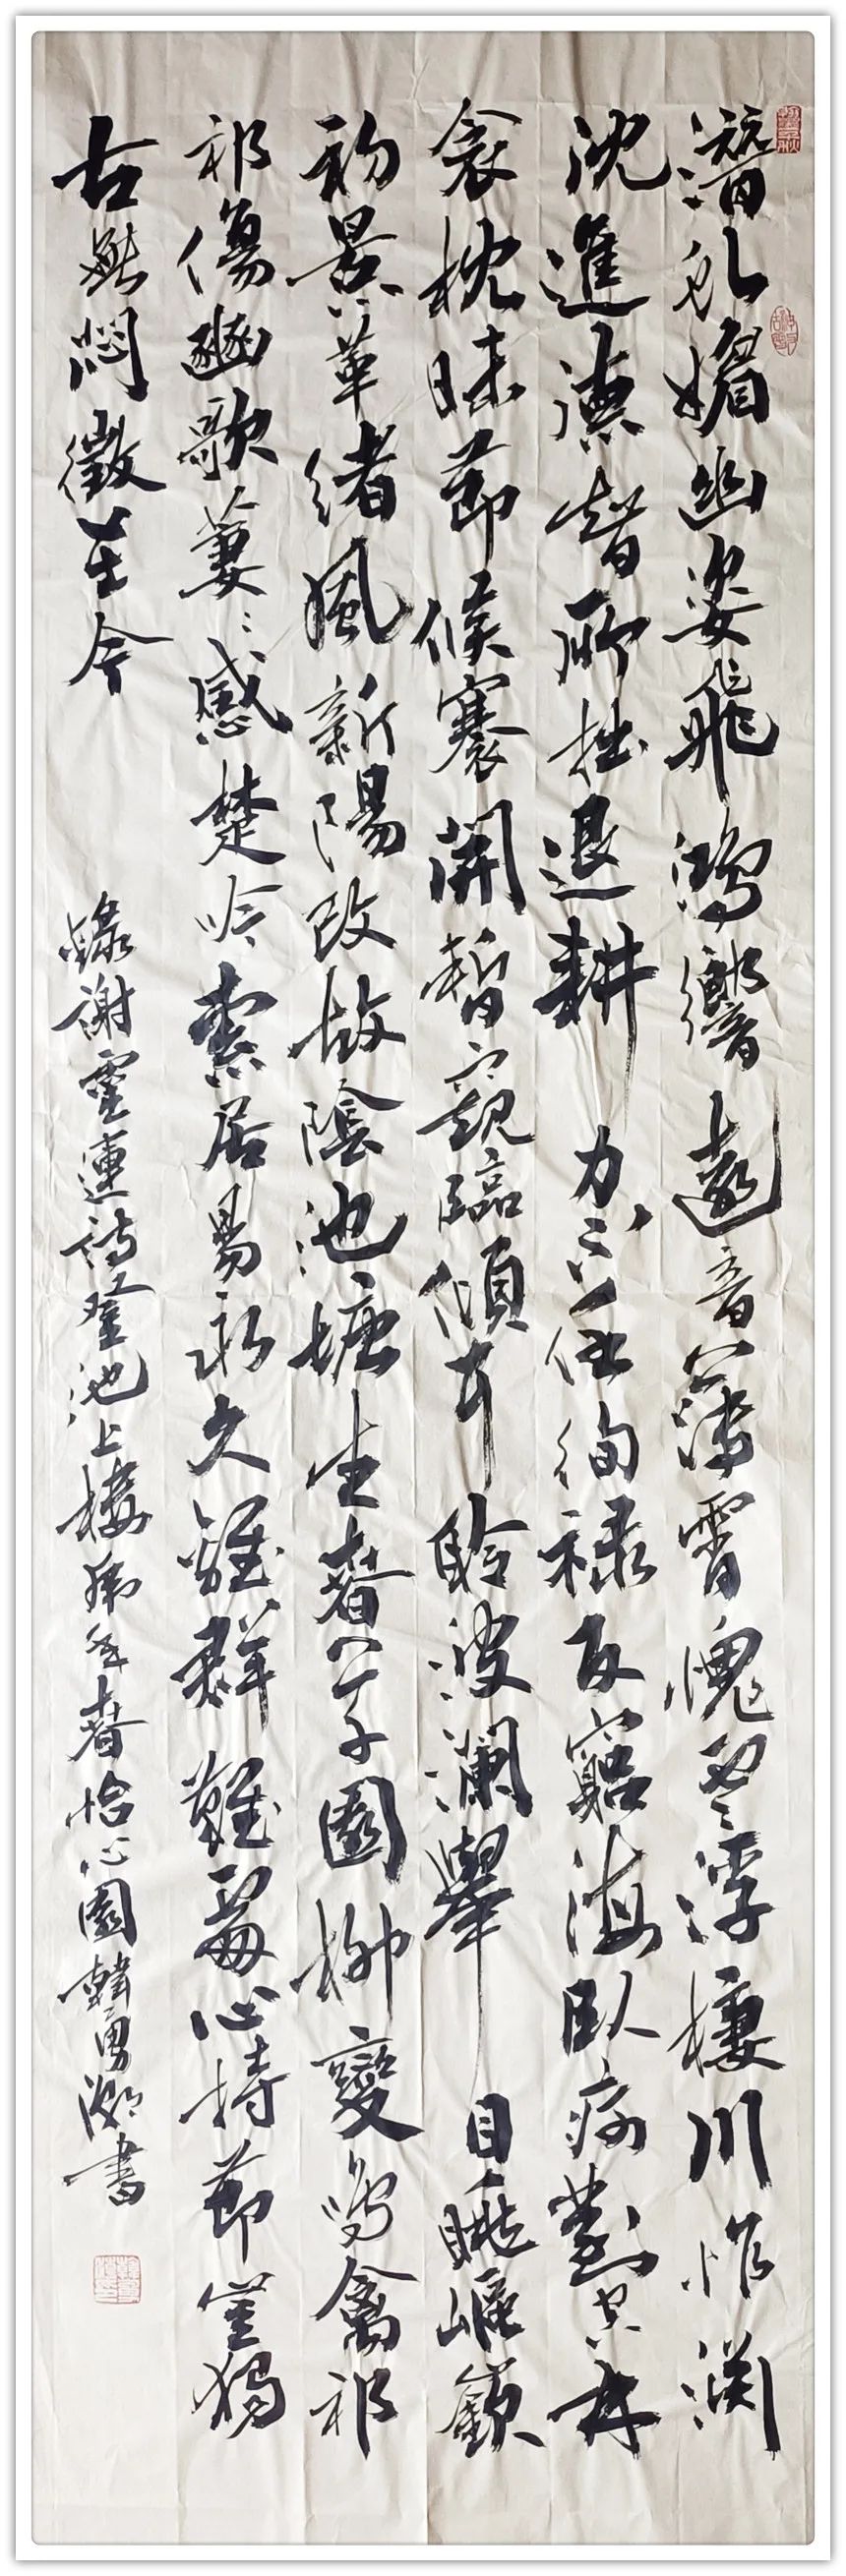 潛虬媚幽姿飛鴻響遠音薄霄愧雲浮棲川怍渊
沈進德智所拙退耕力不任徇祿反窮海臥病對空林
衾枕昧節候褰開暫窺臨傾耳聆波瀾舉目眺嶇嶔
初景革緒風新陽改故陰池塘生春草園柳變鳴禽祁
祁傷豳歌萋〻感楚吟索居易永久離群難處心持節豈獨
古無悶徵在今
錄謝靈運詩登池上樓年春怡心園韓勇書